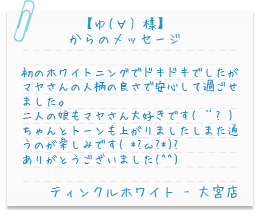 【ゆ(∀) 様】
からのメッセージ
初のホワイトニングでドキドキでしたが
マヤさんの人柄の良さで安心して過ごせ
ました。
二人の娘もマヤさん大好きです( ¨? )
ちゃんとトーンも上がりましたしまた通
うのが楽しみです( *?ω?*)?
ありがとうございました(^^)
ティンクルホワイト - 大宮店